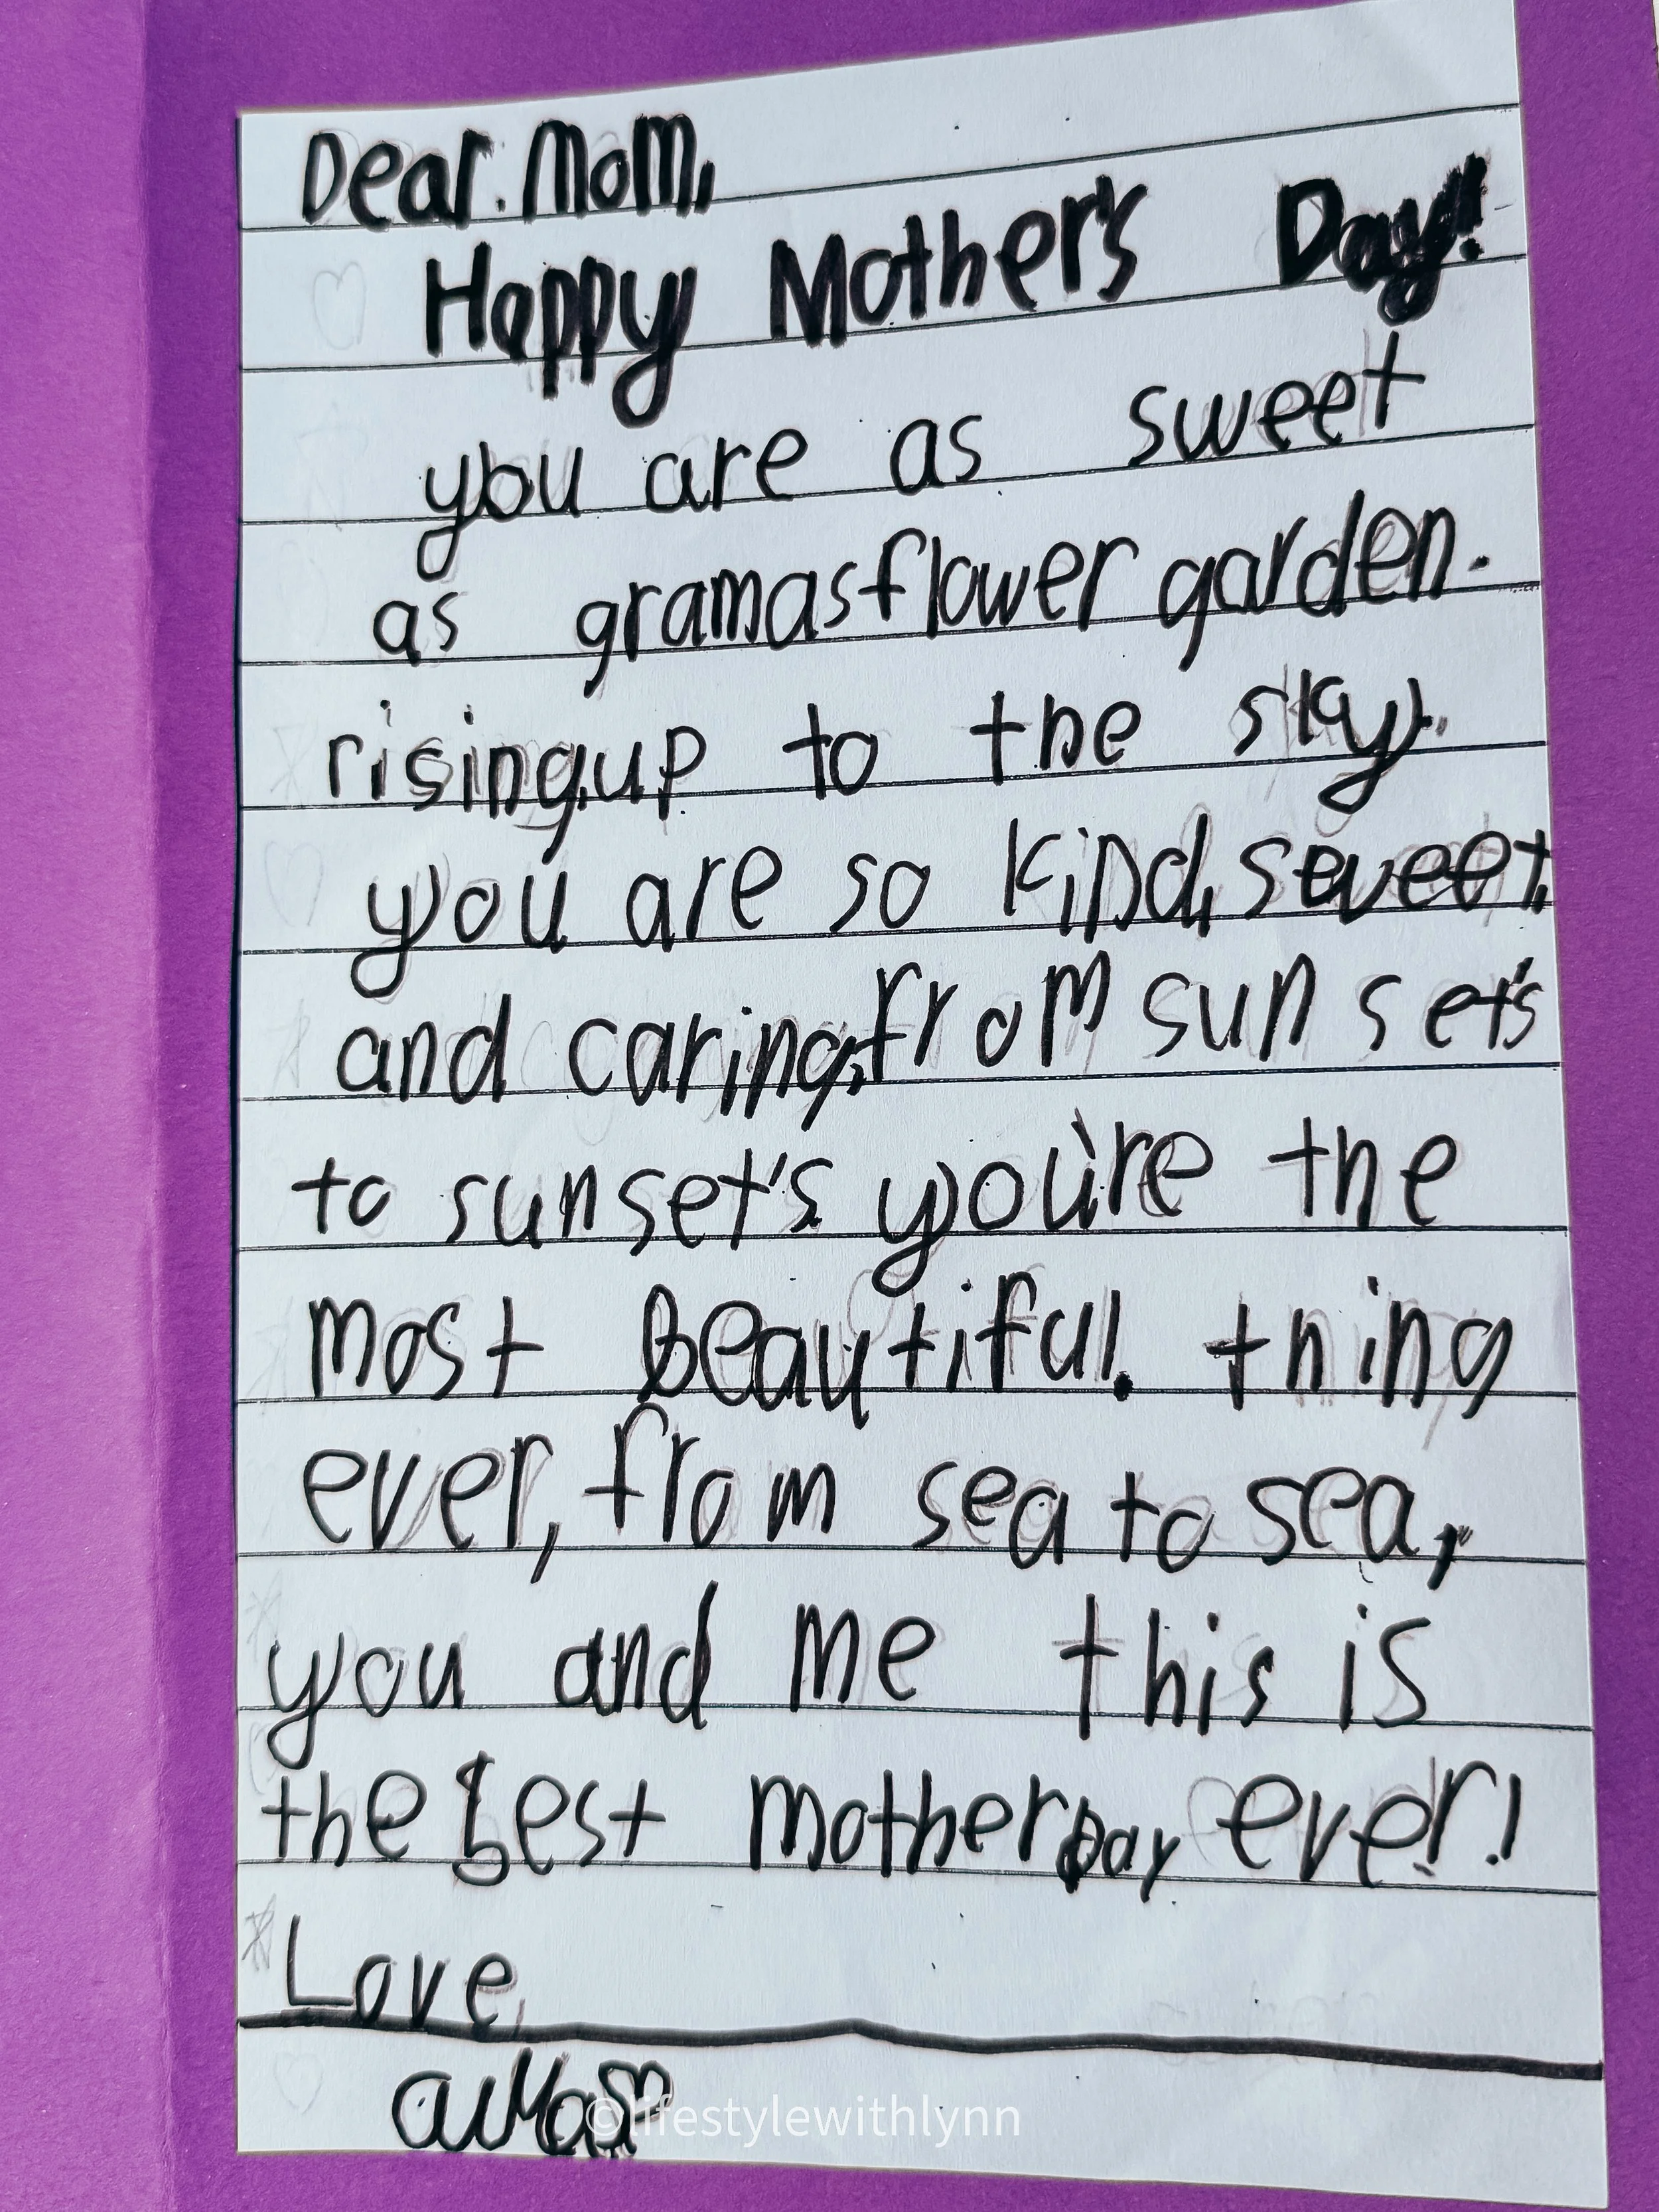 Dear. Mom,
Happy Mother's Day!
you are as sweet
as gramas flower garden.
rising up to the sky.
you are so kind, sweet,
and caring, from sun set's
to sunset's you're the
most beautiful. thing
ever, from sea to sea,
you and me this is
the best mother Day ever!
Love,
©lifestylewithlynn